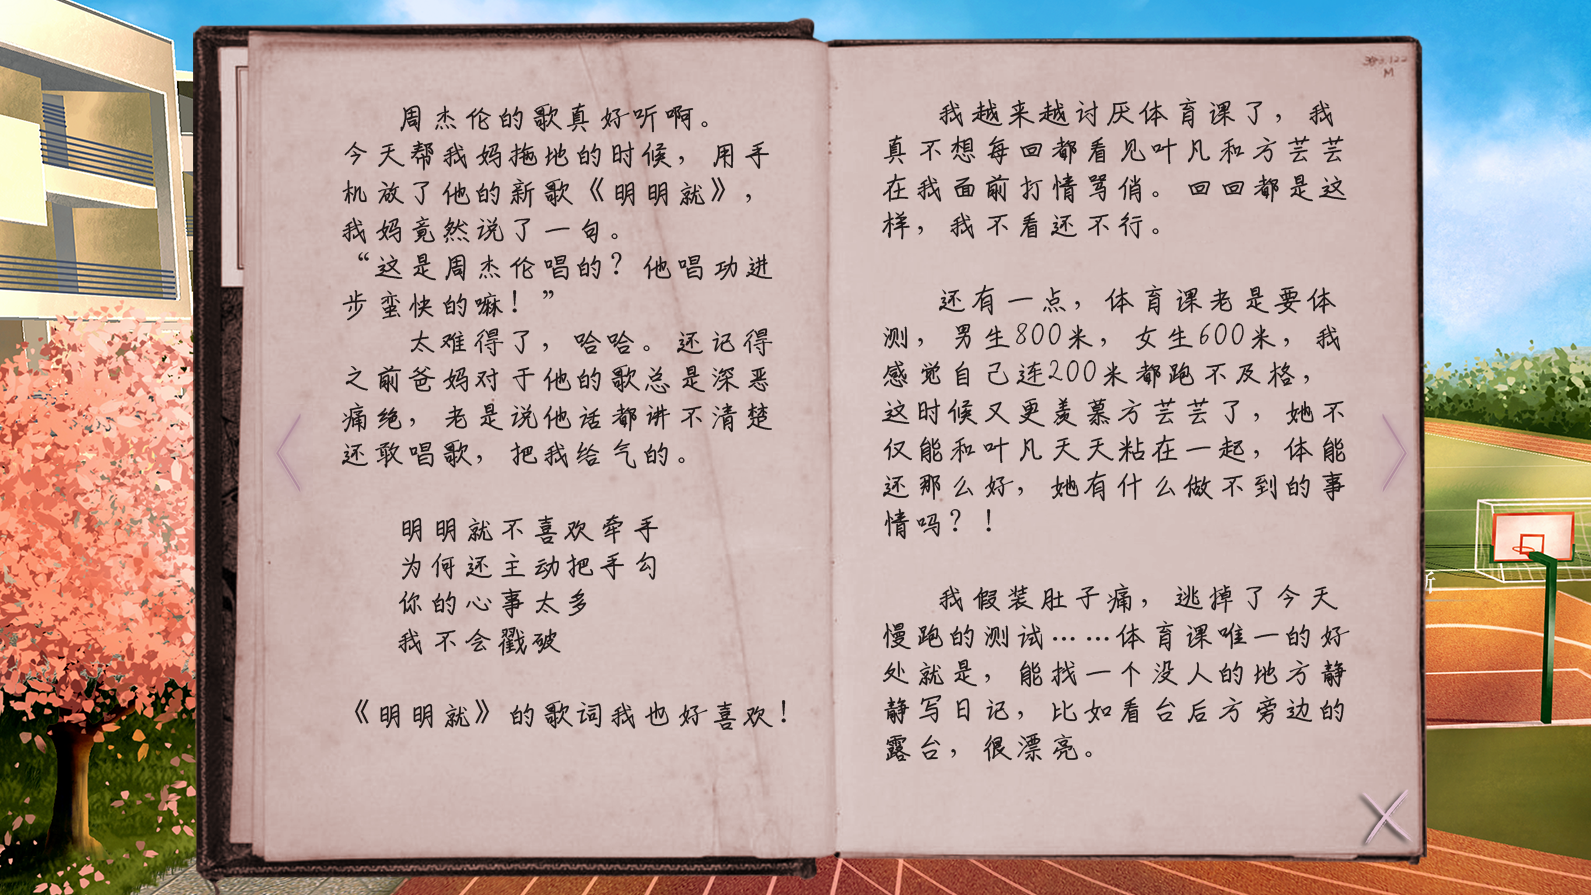 周杰伦的歌真好听啊。
今天帮我妈拖地的时候，用手
机放了他的新歌《明明就》，
我妈竟然说了一句。
“这是周杰伦唱的？他唱功进
步蛮快的嘛！”
太难得了，哈哈。还记得
之前爸妈对于他的歌总是深恶
痛绝，老是说他话都讲不清楚
还敢唱歌，把我给气的。
明明就不喜欢牵手
为何还主动把手勾
你的心事太多
我不会戳破
《明明就》的歌词我也好喜欢！
我越来越讨厌体育课了，我
真不想每回都看见叶凡和方芸芸
在我面前打情骂俏。回回都是这
样，我不看还不行。
还有一点，体育课老是要体
测，男生800米，女生600米，我
感觉自己连200米都跑不及格，
这时候又更羡慕方芸芸了，她不
仅能和叶凡天天粘在一起，体能
还那么好，她有什么做不到的事
情吗？！
我假装肚子痛，逃掉了今天
慢跑的测试……体育课唯一的好
处就是，能找一个没人的地方静
静写日记，比如看台后方旁边的
露台，很漂亮。